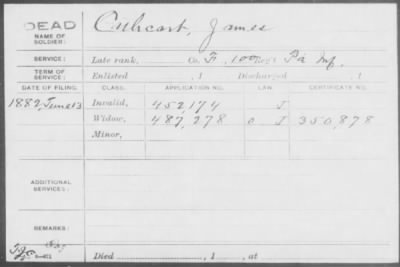 DEAD
NAME OF SOLDIER: Cuthcart, James
SERVICE: Late rank, Co. F, 100 Reg't Pa Inf.
TERM OF SERVICE: Enlisted , 1 Discharged , 1
DATE OF FILING. CLASS. APPLICATION NO. LAW. CERTIFICATE NO.
1882, June 13 Invalid, 452,174 J
Widow, 487,278 J 350,878
Minor,
ADDITIONAL SERVICES:
REMARKS:
Died , 1 , at